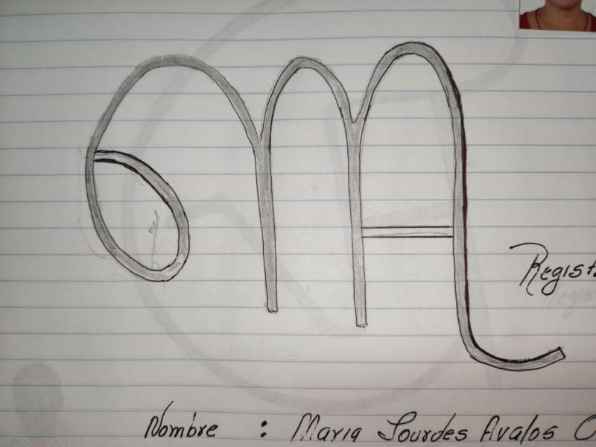 MA
Regist
Nombre : Maria Lourdes Avalos